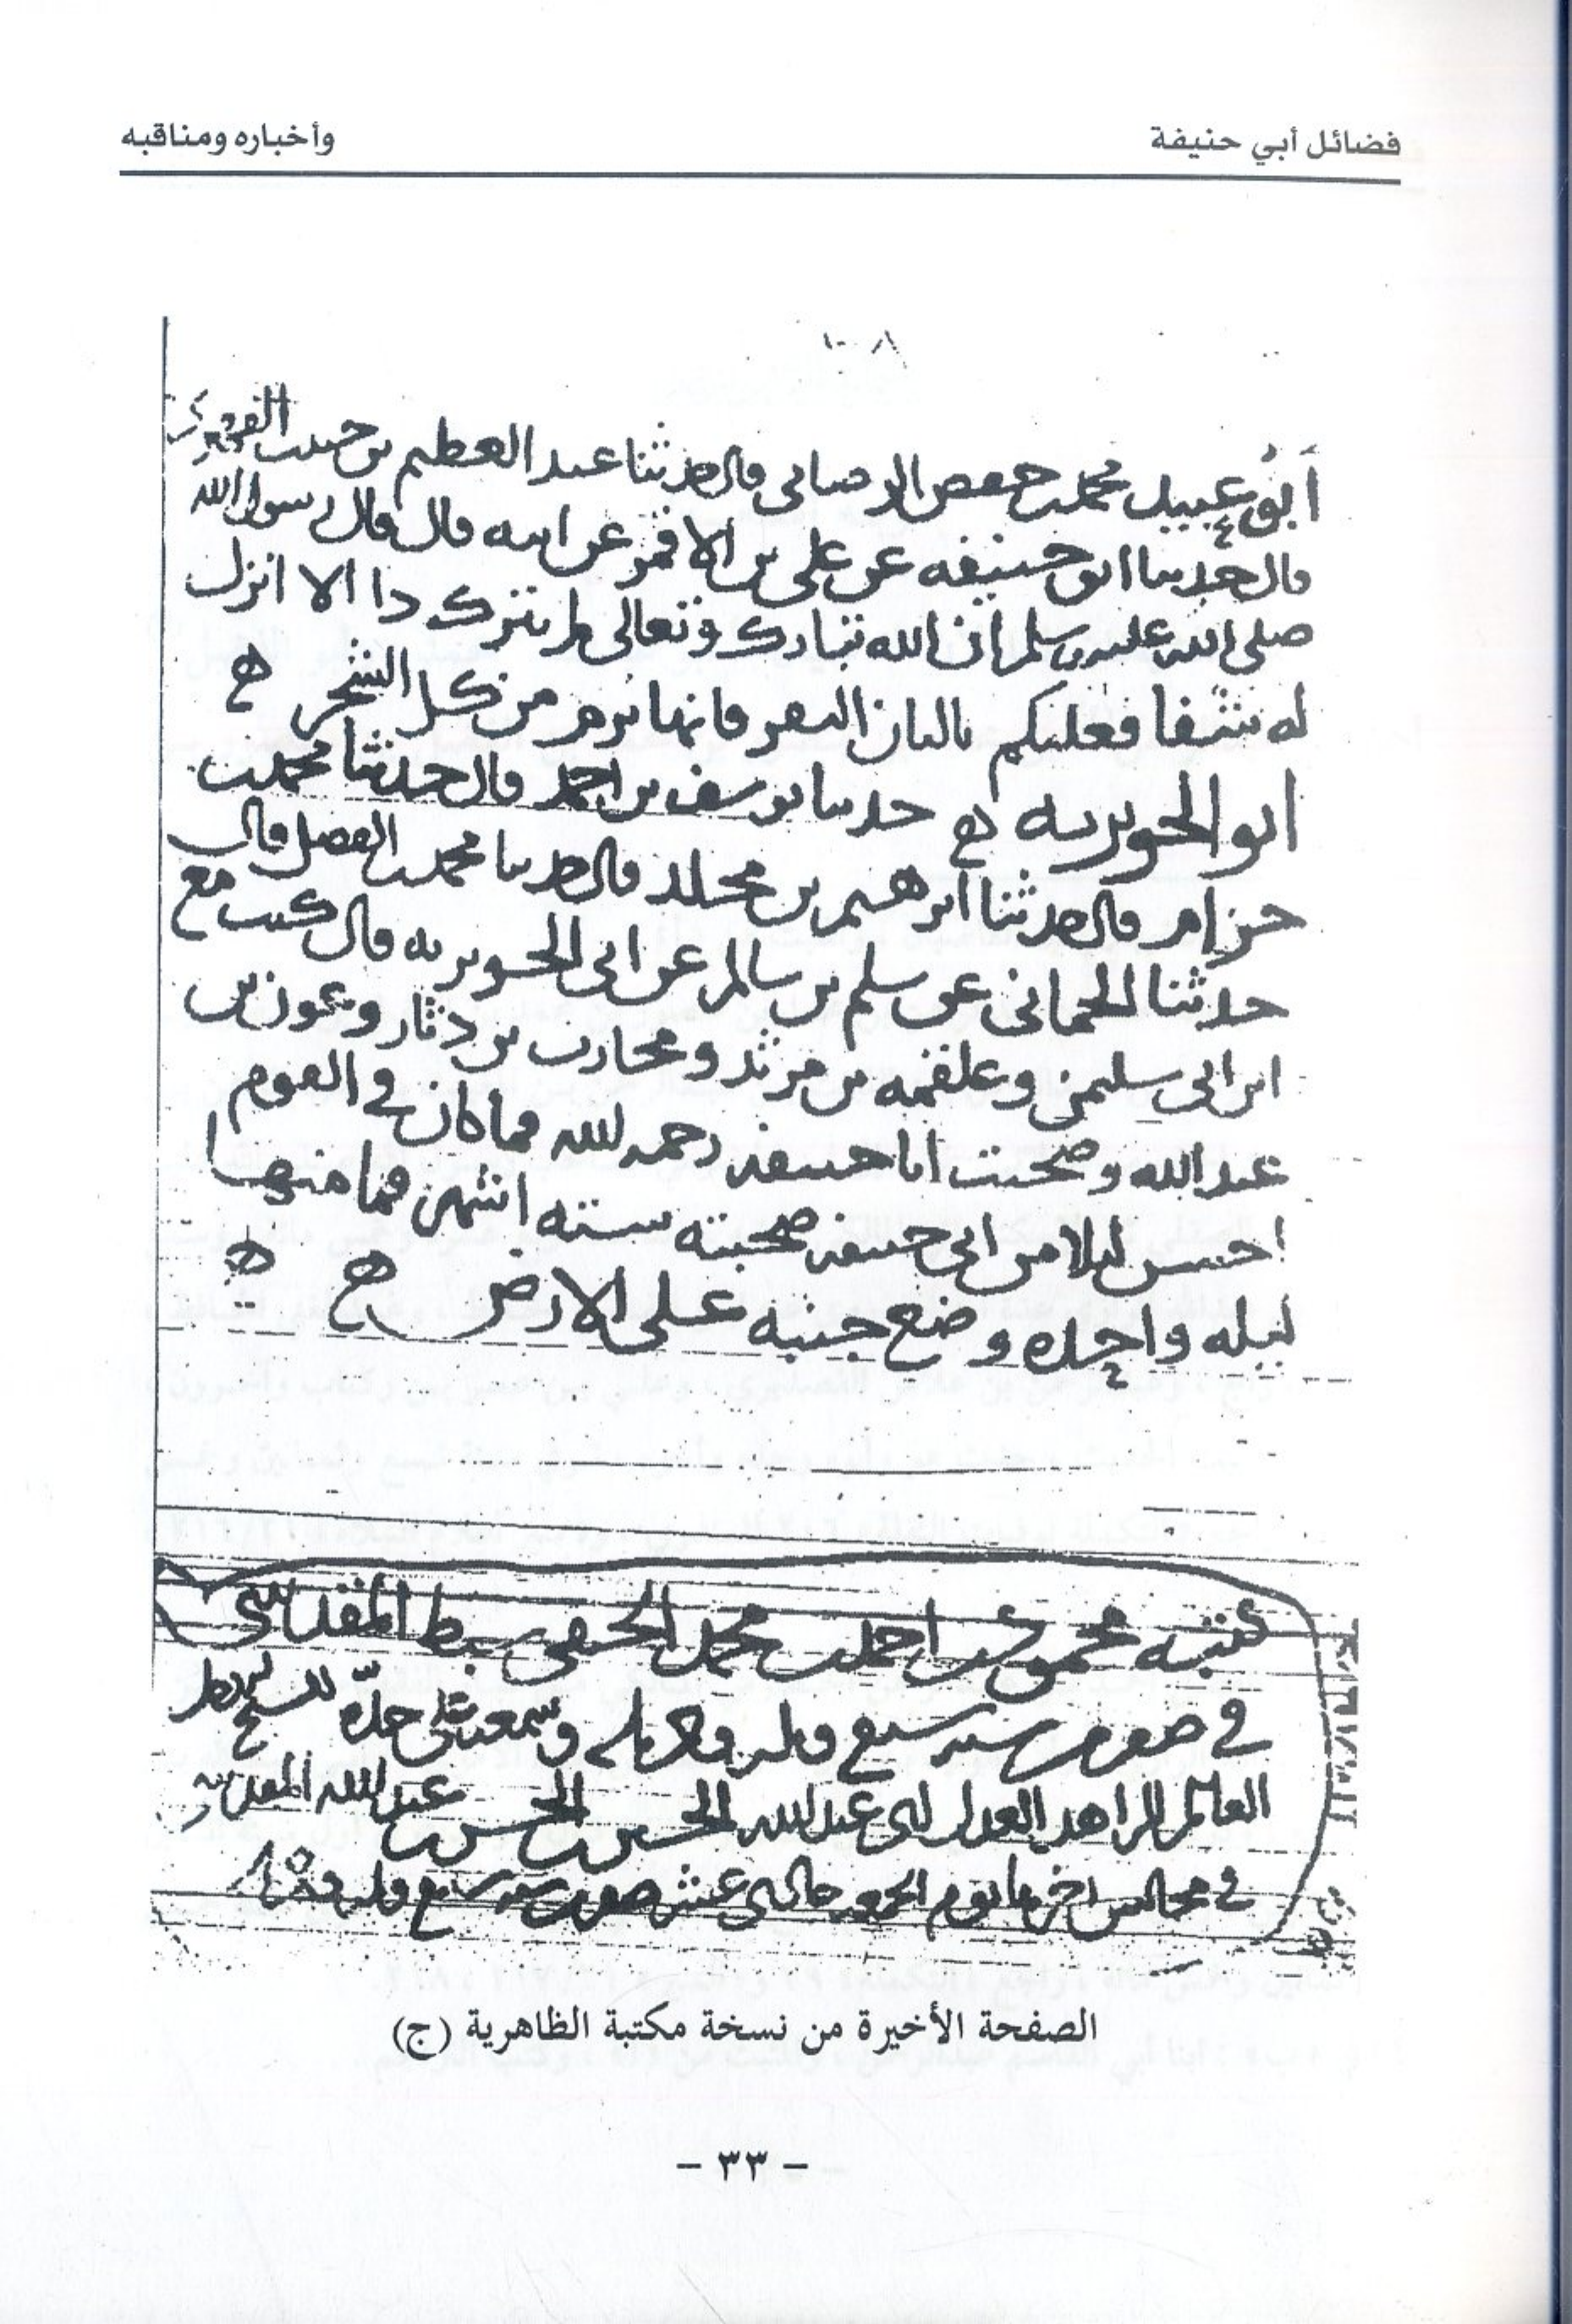 فضائل أبي حنيفة
وأخباره ومناقبه
١٠٨
أبو عبيد محمد بن حفص الرصابى قال حدثنا عبد العظيم بن حبيب
قال حدثنا ابو حنيفه عن على بن الاقمر عن ابيه قال قال رسول الله
صلى الله عليه وسلم ان الله تبارك وتعالى لم ينزل دا الا انزل
له شفا فعليكم بالبان البقر فانها ترم من كل الشجر ه
ابو الجويريه ه حدثنا يوسف بن احمد قال حدثنا محمد بن
حزام قال حدثنا ابرهيم بن مخلد قال حدثنا محمد بن الفضل قال
حدثنا الحماني عن سلم بن سالم عن ابى الجويريه قال كنت مع
ابن ابى سليمن وعلقمه بن مرثد ومحارب بن دثار وعون بن
عبد الله وصحبت ابا حنيفه رحمه الله فما كان في القوم
احسن ليلا من ابي حنيفه صحبته سته اشهر فما منها
ليله واحده وضع جنبه على الارض ه ه
كتبه محمود بن احمد بن محمد الحنفي سبط المقدسي
في صفر سنه سبع
العالم الزاهد العدل ابى عبد الله الحسين بن الحسن بن عبد الله المقدسي
في مجالس اخرها يوم الجمعه عشر صفر سنه سبع
الصفحة الأخيرة من نسخة مكتبة الظاهرية (ج)
- ٣٣ -